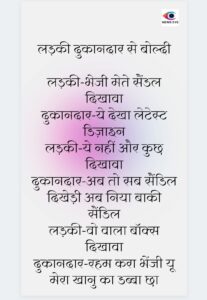 लड़की दुकानदार से बोल्दी
लड़की-भेजी मेते सैंडल
दिखावा
दुकानदार-ये देखा लेटेस्ट
डिज़ाइन
लड़की-ये नहीं और कुछ
दिखावा
दुकानदार-अब तो सब सैंडिल
दिखेड़ी अब निया बाकी
सैंडिल
लड़की-वो वाला बॉक्स
दिखावा
दुकानदार-रहम करा भेंजी यू
मेरा खानु का डब्बा छा